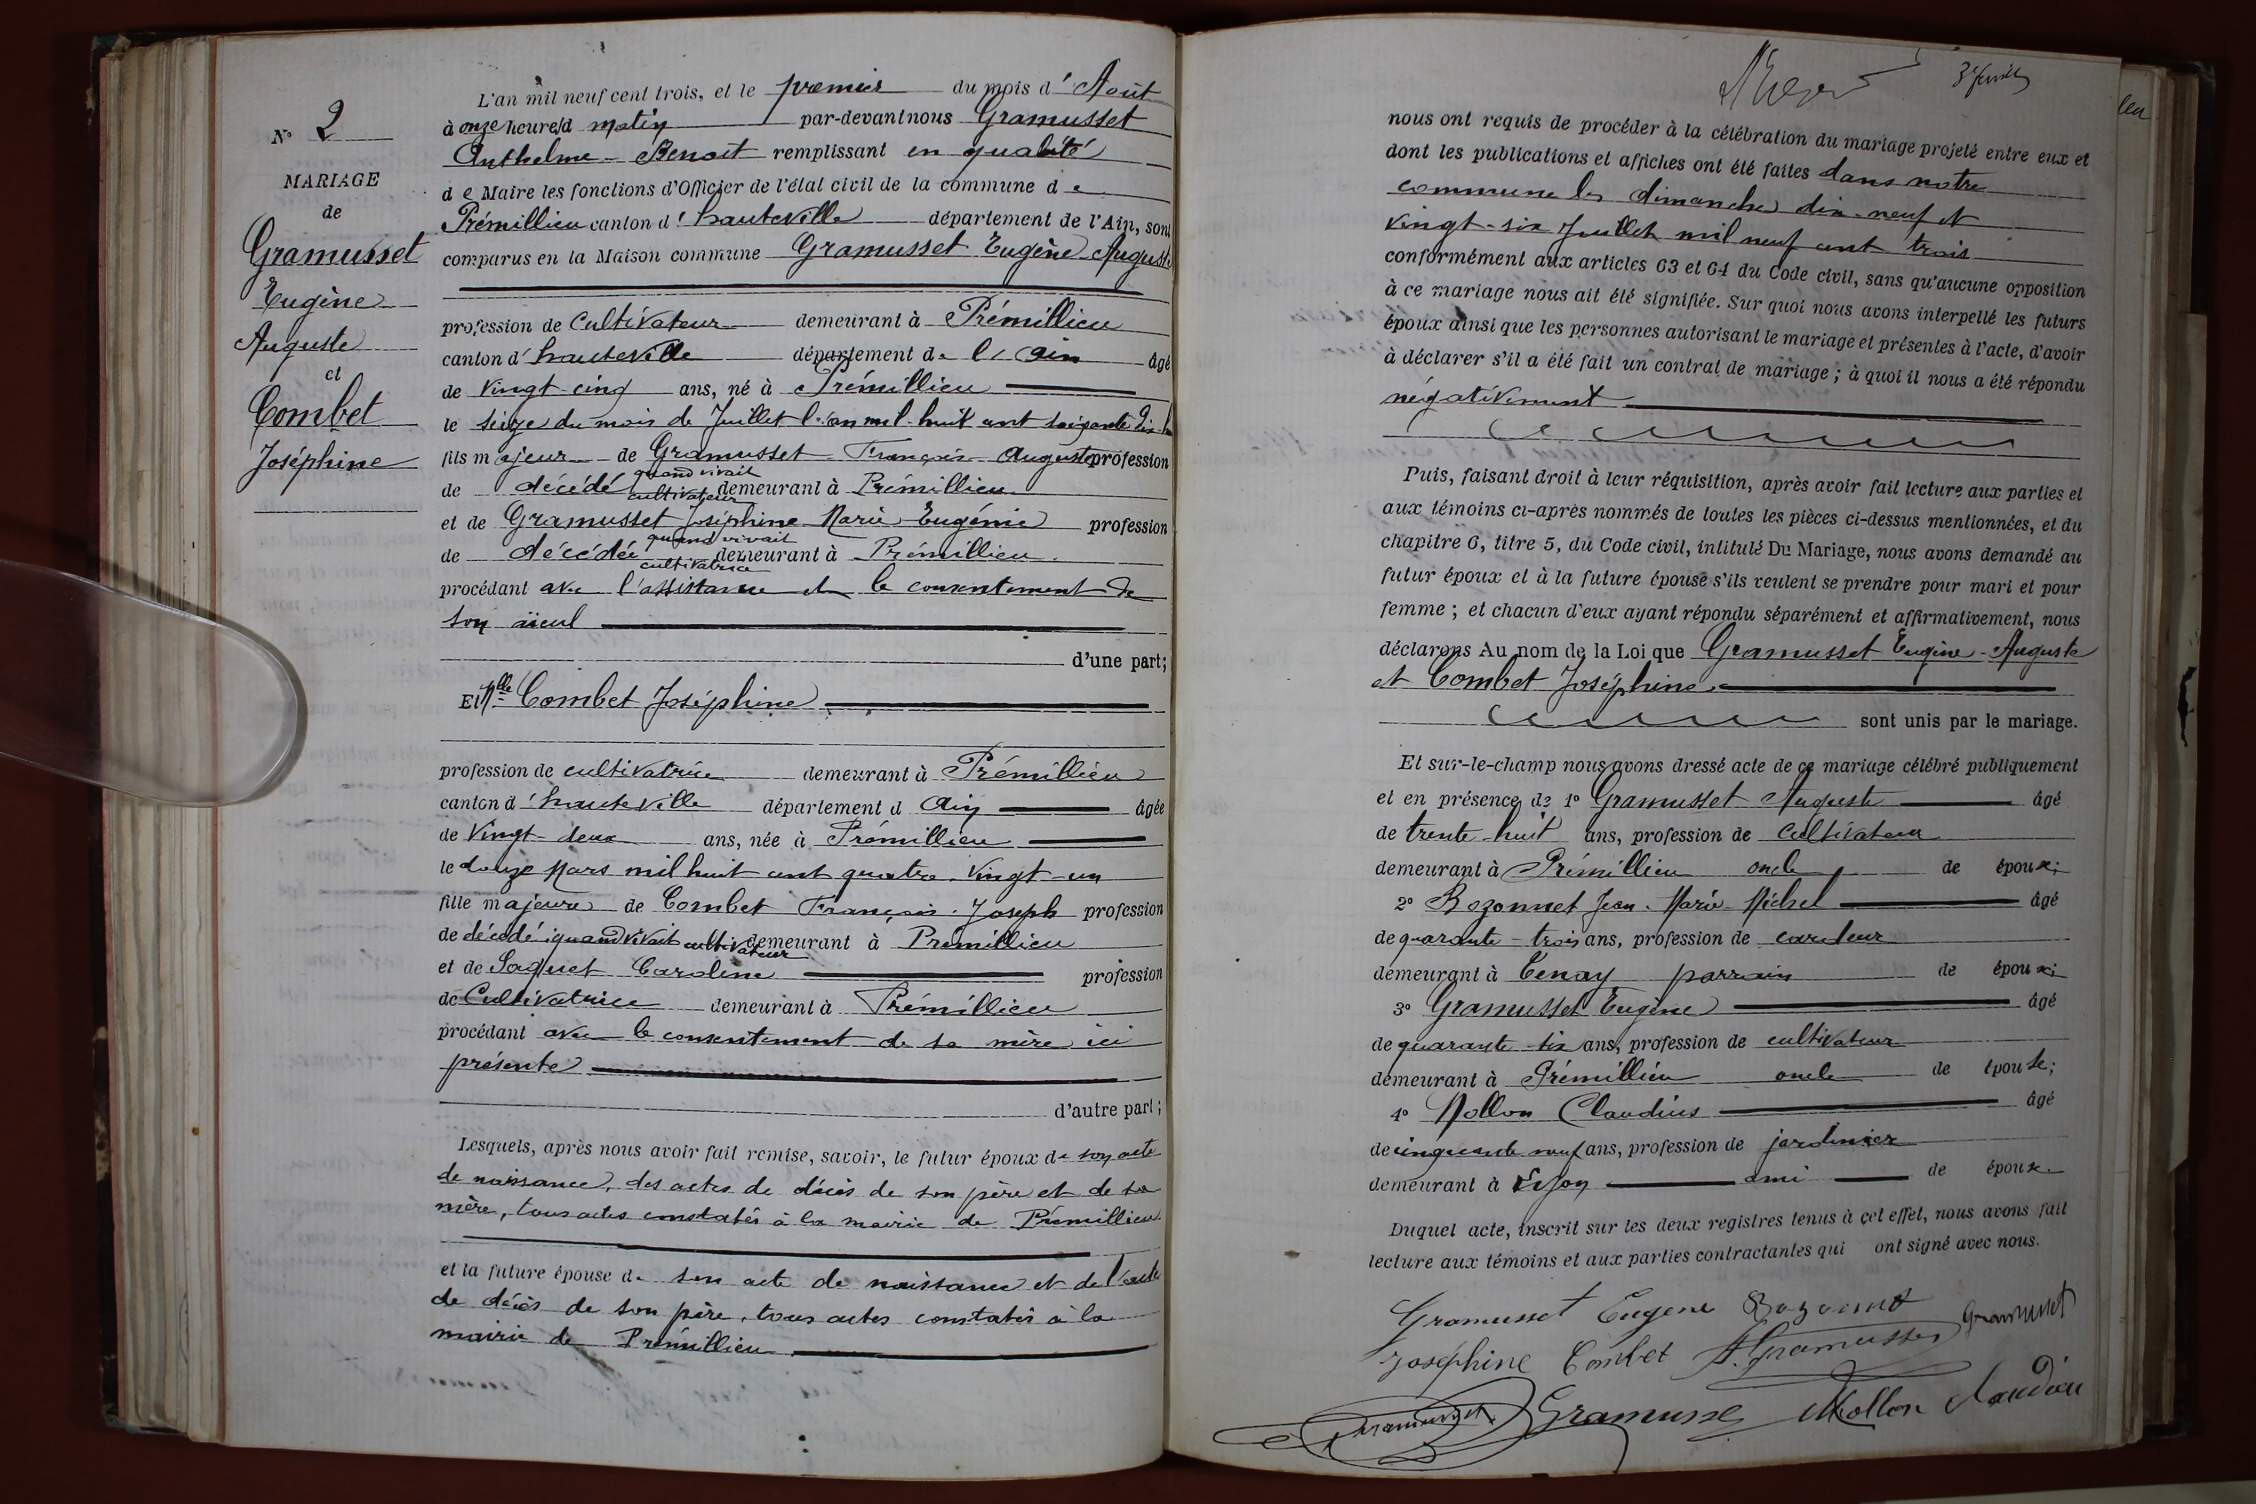 N° 2
MARIAGE
de
Gramusset
Eugène
Auguste
et
Combet
Joséphine
L'an mil neuf cent trois, et le premier du mois d' Août
à onze heures d matin par-devant nous Gramusset
Anthelme-Benoit remplissant en qualité
de Maire les fonctions d'Officier de l'état civil de la commune de
Prémillieu canton d' hauteville département de l'Ain, sont
comparus en la Maison commune Gramusset Eugène Auguste
profession de Cultivateur demeurant à Prémillieu
canton d' hauteville département de l'Ain âgé
de vingt-cinq ans, né à Prémillieu
le seize du mois de Juillet l'an mil huit cent soixante dix-h
fils majeur de Gramusset François Auguste profession
de décédé quand vivait cultivateur demeurant à Prémillieu
et de Gramusset Joséphine Marie Eugénie profession
de décédée quand vivait cultivatrice demeurant à Prémillieu.
procédant avec l'assistance et le consentement de
son aïeul
d'une part;
Et Mlle Combet Joséphine
profession de cultivatrice demeurant à Prémillieu
canton d' hauteville département d Ain âgée
de vingt-deux ans, née à Prémillieu
le douze Mars mil huit cent quatre-vingt-un
fille majeure de Combet François-Joseph profession
de décédé quand vivait cultivateur demeurant à Prémillieu
et de Saquet Caroline profession
de Cultivatrice demeurant à Prémillieu
procédant avec le consentement de sa mère ici
présente
d'autre part;
Lesquels, après nous avoir fait remise, savoir, le futur époux de son acte
de naissance, des actes de décès de son père et de sa
mère, tous actes constatés à la mairie de Prémillieu
et la future épouse de son acte de naissance et de l'acte
de décès de son père, tous actes constatés à la
mairie de Prémillieu
nous ont requis de procéder à la célébration du mariage projeté entre eux et
dont les publications et affiches ont été faites dans notre
commune les dimanches dix-neuf et
vingt-six Juillet mil neuf cent trois
conformément aux articles 63 et 64 du Code civil, sans qu'aucune opposition
à ce mariage nous ait été signifiée. Sur quoi nous avons interpellé les futurs
époux ainsi que les personnes autorisant le mariage et présentes à l'acte, d'avoir
à déclarer s'il a été fait un contrat de mariage; à quoi il nous a été répondu
négativement
Puis, faisant droit à leur réquisition, après avoir fait lecture aux parties et
aux témoins ci-après nommés de toutes les pièces ci-dessus mentionnées, et du
chapitre 6, titre 5, du Code civil, intitulé Du Mariage, nous avons demandé au
futur époux et à la future épouse s'ils veulent se prendre pour mari et pour
femme; et chacun d'eux ayant répondu séparément et affirmativement, nous
déclarons Au nom de la Loi que Gramusset Eugène-Auguste
et Combet Joséphine
sont unis par le mariage.
Et sur-le-champ nous avons dressé acte de ce mariage célébré publiquement
et en présence de 1° Gramusset Auguste âgé
de trente-huit ans, profession de cultivateur
demeurant à Prémillieu oncle de époux;
2° Bozonnet Jean-Marie Michel âgé
de quarante-trois ans, profession de cardeur
demeurant à Tenay parrain de époux;
3° Gramusset Eugène âgé
de quarante-six ans, profession de cultivateur
demeurant à Prémillieu oncle de épouse;
4° Mollon Claudius âgé
de cinquante neuf ans, profession de jardinier
demeurant à Lyon ami de époux.
Duquel acte, inscrit sur les deux registres tenus à cet effet, nous avons fait
lecture aux témoins et aux parties contractantes qui ont signé avec nous.
Gramusset Eugene Bozonnet Gramusset
Joséphine Combet A. Gramusset
Gramusset Gramusset Mollon Claudius